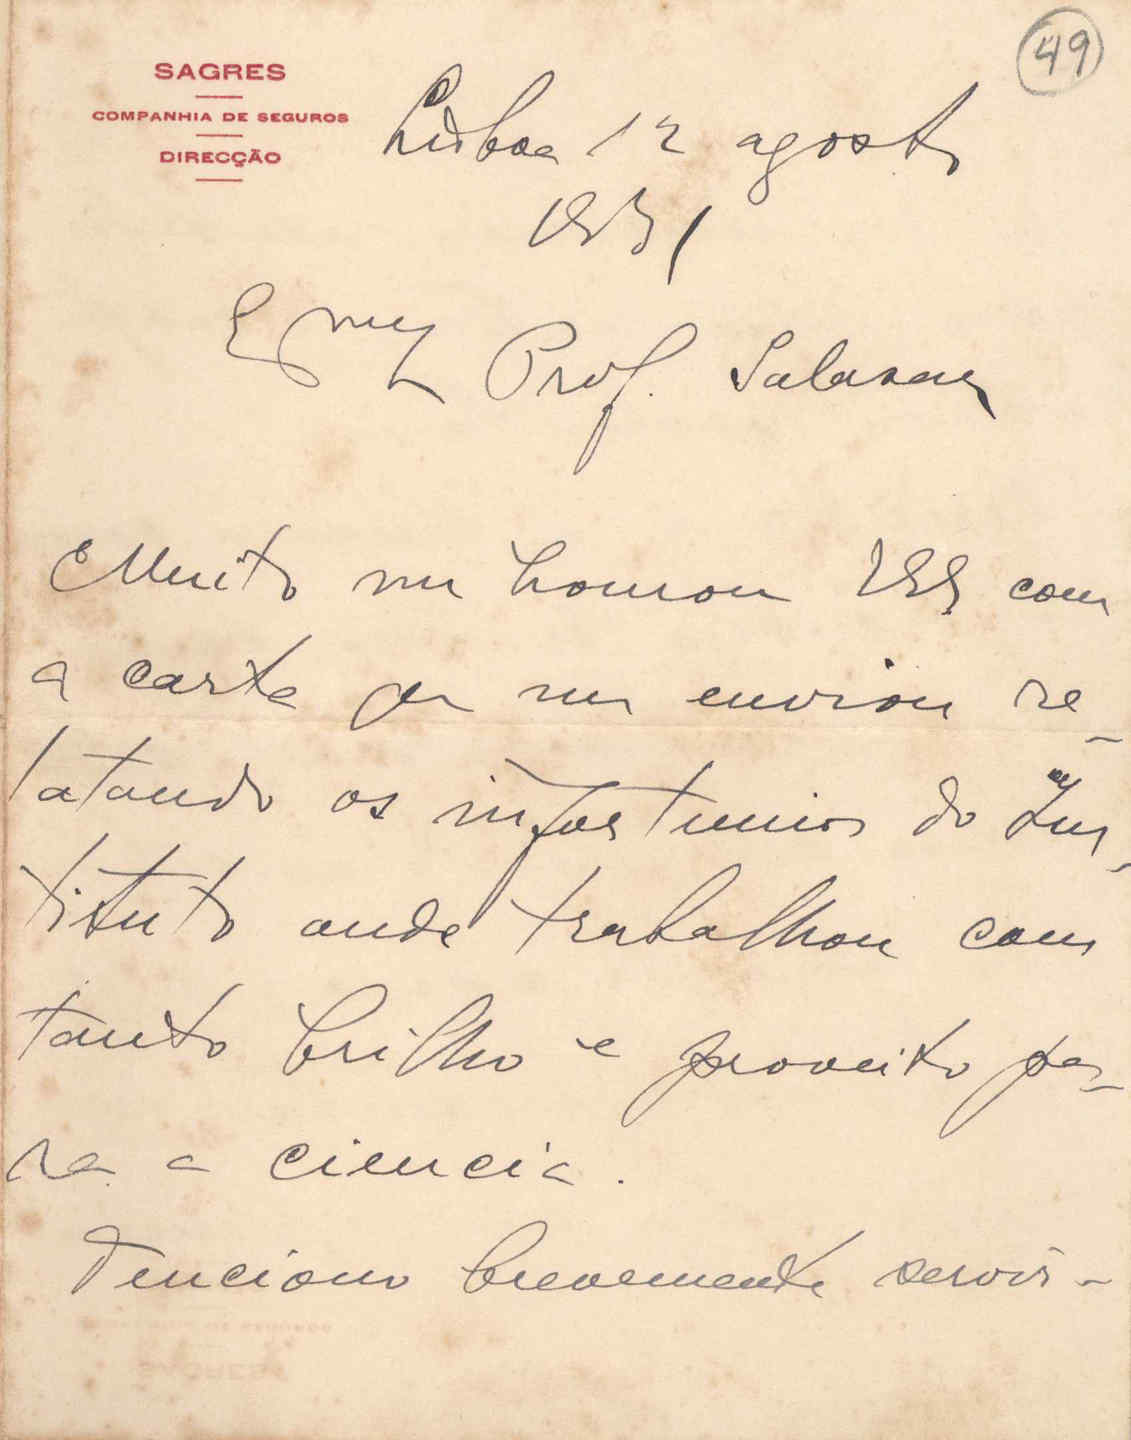 49
SAGRES
COMPANHIA DE SEGUROS
DIRECÇÃO
Lisboa 12 agosto
1931
Exmº Prof. Salazar
Muito me honrou VExª com
a carta que me enviou re-
latando os infortunios do Ins-
tituto onde trabalhou com
tanto brilho e proveito pa-
ra a ciencia.
Tenciono brevemente servir-